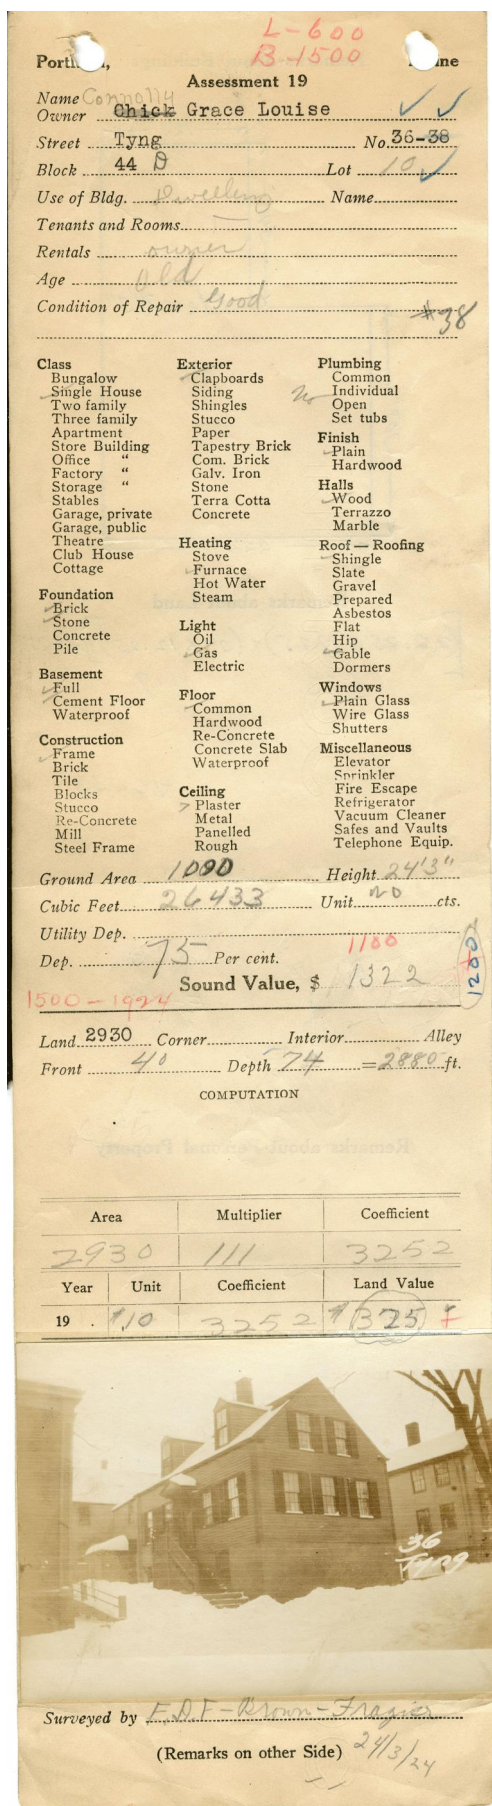 L-600
B-1500
Portl , ine
Assessment 19
Name Connolly
Owner Chick Grace Louise
Street Tyng No. 36-38
Block 44 D Lot 10
Use of Bldg. Dwelling Name
Tenants and Rooms
Rentals owner
Age Old
Condition of Repair Good
#38
Class
Bungalow
Single House
Two family
Three family
Apartment
Store Building
Office "
Factory "
Storage "
Stables
Garage, private
Garage, public
Theatre
Club House
Cottage
Foundation
Brick
Stone
Concrete
Pile
Basement
Full
Cement Floor
Waterproof
Construction
Frame
Brick
Tile
Blocks
Stucco
Re-Concrete
Mill
Steel Frame
Exterior
Clapboards
Siding
Shingles
Stucco
Paper
Tapestry Brick
Com. Brick
Galv. Iron
Stone
Terra Cotta
Concrete
Heating
Stove
Furnace
Hot Water
Steam
Light
Oil
Gas
Electric
Floor
Common
Hardwood
Re-Concrete
Concrete Slab
Waterproof
Ceiling
Plaster
Metal
Panelled
Rough
Plumbing
Common
No Individual
Open
Set tubs
Finish
Plain
Hardwood
Halls
Wood
Terrazzo
Marble
Roof — Roofing
Shingle
Slate
Gravel
Prepared
Asbestos
Flat
Hip
Gable
Dormers
Windows
Plain Glass
Wire Glass
Shutters
Miscellaneous
Elevator
Sprinkler
Fire Escape
Refrigerator
Vacuum Cleaner
Safes and Vaults
Telephone Equip.
Ground Area 1090 Height 24'3"
Cubic Feet 26433 Unit NO cts.
Utility Dep.
Dep. 75 Per cent. 1100
Sound Value, $ 1322
1200
1500-1924
Land 2930 Corner Interior Alley
Front 40 Depth 74 = 2880 ft.
COMPUTATION
Remarks about Personal Property
Area Multiplier Coefficient
2930 111 3252
Year Unit Coefficient Land Value
19 . $.10 3252 $325
36
Tyng
Surveyed by F.D.F-Brown-Frazier
(Remarks on other Side) 24/3/24